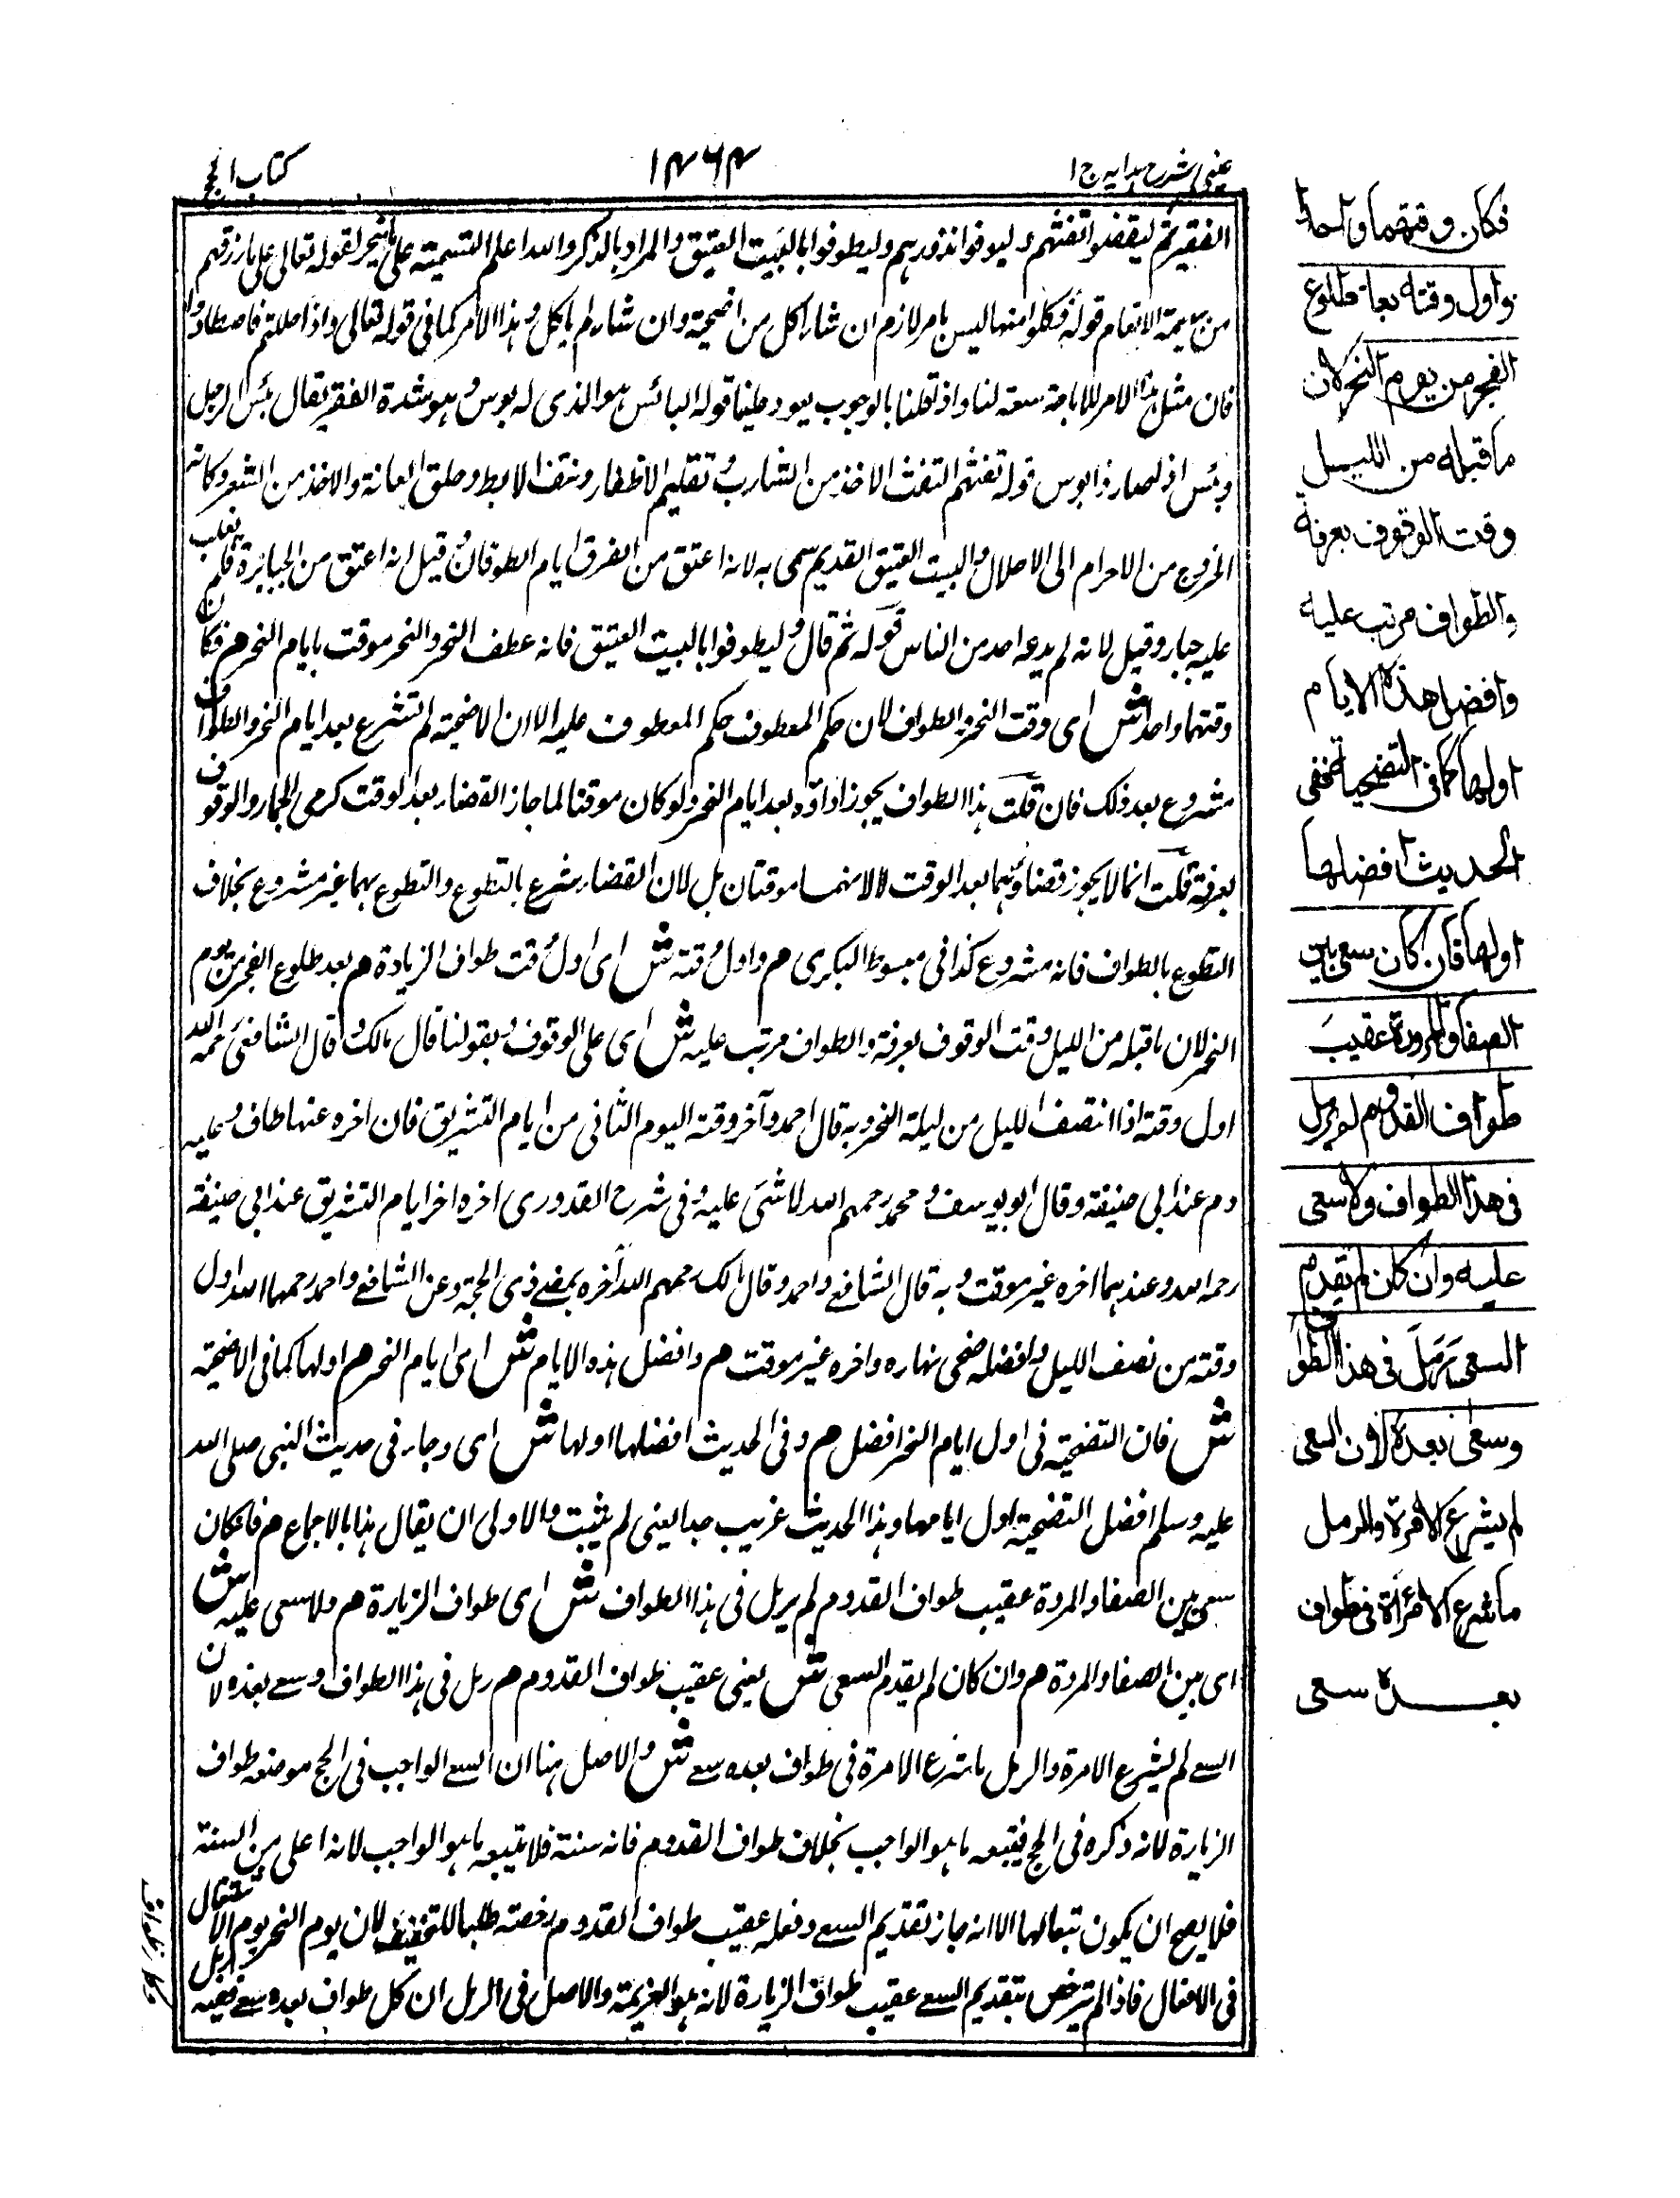 عینی شرح ہدایہ ج ۱
۱۴۶۴
کتاب الحج
الفقیر ثم لیقضوا تفثہم ولیوفوا نذورہم ولیطوفوا بالبیت العتیق والمراد بالذکر واللہ اعلم التسمیۃ علی ما ینحر لقولہ تعالی علی ما رزقہم
من بہیمۃ الانعام قولہ فکلوا منہا لیس بامر لازم ان شاء اکل من اضحیتہ وان شاء لم یاکل وہذا الامر کما فی قولہ تعالی واذا حللتم فاصطادوا
فان مثل ہذا الامر للاباحۃ سعۃ لنا واذ قلنا بالوجوب یعود علینا قولہ البائس ہو الذی لہ بوس وہو شدۃ الفقر یقال بئس الرجل
وبئس اذا صار ذا بوس قولہ تفثہم التفث الاخذ من الشارب وتقلیم الاظفار ونتف الابط وحلق العانۃ والاخذ من الشعر وکانہ
الخروج من الاحرام الی الاحلال والبیت العتیق القدیم سمی بہ لانہ اعتق من الغرق ایام الطوفان وقیل انہ اعتق من الجبابرۃ فلم یغلب
علیہ جبار وقیل لانہ لم یدعہ احد من الناس قولہ ثم قال ولیطوفوا بالبیت العتیق فانہ عطف النحر والنحر موقت بایام النحر م فکان
وقتہما واحدا ش ای وقت النحر والطواف لان حکم المعطوف حکم المعطوف علیہ الا ان الاضحیۃ لم تشرع بعد ایام النحر والطواف
مشروع بعد ذلک فان قلت ہذا الطواف یجوز اداؤہ بعد ایام النحر ولو کان موقتا لما جاز القضاء بعد الوقت کرمی الجمار والوقوف
بعرفۃ قلت انما لا یجوز قضاؤہما بعد الوقت لا لانہما موقتان بل لان القضاء شرع بالتطوع والتطوع بہما غیر مشروع بخلاف
التطوع بالطواف فانہ مشروع کذا فی مبسوط البکری م واول وقتہ ش ای اول وقت طواف الزیادۃ م بعد طلوع الفجر من یوم
النحر لان ما قبلہ من اللیل وقت الوقوف بعرفۃ والطواف مرتب علیہ ش ای علی الوقوف وبقولنا قال مالک وقال الشافعی رحمہ اللہ
اول وقتہ اذا انتصف اللیل من لیلۃ النحر وبہ قال احمد وآخر وقتہ الیوم الثانی من ایام التشریق فان اخرہ عنہا طاف وعلیہ
دم عند ابی حنیفۃ وقال ابو یوسف ومحمد رحمہم اللہ لا شئ علیہ وفی شرح القدوری اخرہ اخر ایام التشریق عند ابی حنیفۃ
رحمہ اللہ وعندہما اخرہ غیر موقت وبہ قال الشافعے واحمد وقال مالک رحمہم اللہ آخرہ بمضے ذی الحجۃ وعن الشافعے واحمد رحمہما اللہ اول
وقتہ من نصف اللیل وافضلہ ضحی نہارہ واخرہ غیر موقت م وافضل ہذہ الایام ش ای ایام النحر م اولہا کما فی الاضحیۃ
ش فان التضحیۃ فی اول ایام النحر افضل م وفی الحدیث افضلہا اولہا ش ای وجاء فی حدیث النبی صلی اللہ
علیہ وسلم افضل التضحیۃ اول ایامہا وہذا الحدیث غریب جدا یعنی لم یثبت والاولی ان یقال ہذا بالاجماع م فان کان
سعی بین الصفا والمروۃ عقیب طواف القدوم لم یرمل فی ہذا الطواف ش ای طواف الزیارۃ م ولا سعی علیہ ش
ای بین الصفا والمروۃ م وان کان لم یقدم السعی ش یعنی عقیب طواف القدوم م رمل فی ہذا الطواف وسعے بعدہ لان
السعے لم یشرع الا مرۃ والرمل ما شرع الا مرۃ فی طواف بعدہ سعے ش والاصل ہنا ان السعے الواجب فی الحج موضعہ طواف
الزیارۃ لانہ ذکرہ فی الحج فیتبعہ ما ہو الواجب بخلاف طواف القدوم فانہ سنۃ فلا یتبعہ ما ہو الواجب لانہ اعلی من السنۃ
فلا یصح ان یکون تبعا لہا الا انہ جاز تقدیم السعے وفعلہ عقیب طواف القدوم رخصتہ طلبا للتخفیف لان یوم النحر یوم الاشتغال
فی الافعال فاذا لم یترخص بتقدیم السعے عقیب طواف الزیارۃ لانہ ہو العزیمۃ والاصل فی الرمل ان کل طواف بعدہ سعے ففیہ رمل
فکان وقتهما واحدا
واول وقته بعد طلوع
الفجر من یوم النحر لان
ما قبله من اللیل
وقت الوقوف بعرفة
والطواف مرتب علیه
وافضل هذه الایام
اولها کما فی التضحیة وفی
الحدیث افضلها
اولها فان کان سعی بین
الصفا والمروة عقیب
طواف القدوم لم یرمل
فی هذا الطواف ولا سعی
علیه وان کان لم یقدم
السعی رمل فی هذا الطواف
وسعی بعده لان السعی
لم یشرع الا مرة والرمل
ما شرع الا مرة فی طواف
بعده سعی